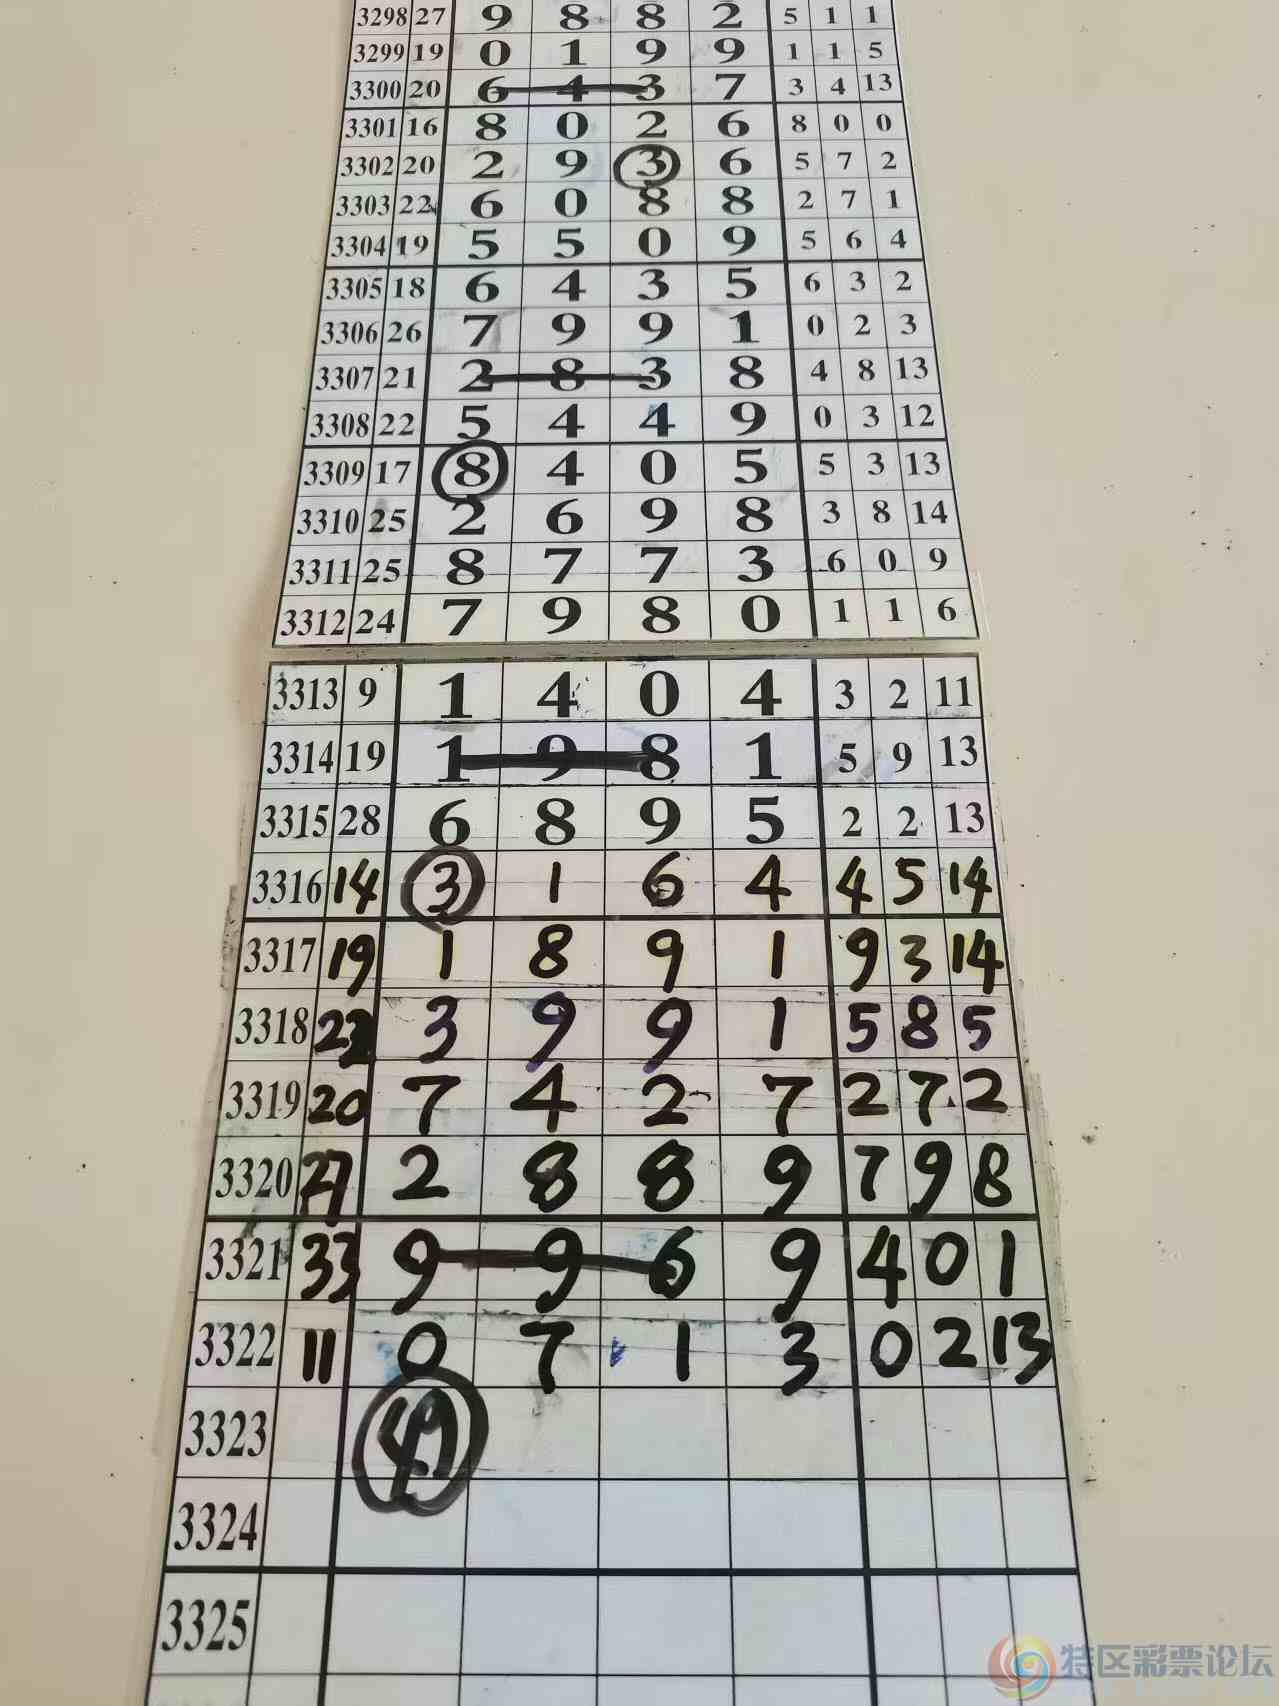 3298 27 9 8 8 2 5 1 1
3299 19 0 1 9 9 1 1 5
3300 20 6 4 3 7 3 4 13
3301 16 8 0 2 6 8 0 0
3302 20 2 9 3 6 5 7 2
3303 22 6 0 8 8 2 7 1
3304 19 5 5 0 9 5 6 4
3305 18 6 4 3 5 6 3 2
3306 26 7 9 9 1 0 2 3
3307 21 2 8 3 8 4 8 13
3308 22 5 4 4 9 0 3 12
3309 17 8 4 0 5 5 3 13
3310 25 2 6 9 8 3 8 14
3311 25 8 7 7 3 6 0 9
3312 24 7 9 8 0 1 1 6
3313 9 1 4 0 4 3 2 11
3314 19 1 9 8 1 5 9 13
3315 28 6 8 9 5 2 2 13
3316 14 3 1 6 4 4 5 14
3317 19 1 8 9 1 9 3 14
3318 3 9 9 1 5 8 5
3319 20 7 4 2 7 2 7 2
3320 27 2 8 8 9 7 9 8
3321 33 9 9 6 9 4 0 1
3322 11 0 7 1 3 0 2 13
3323
3324
3325
特区彩票论坛